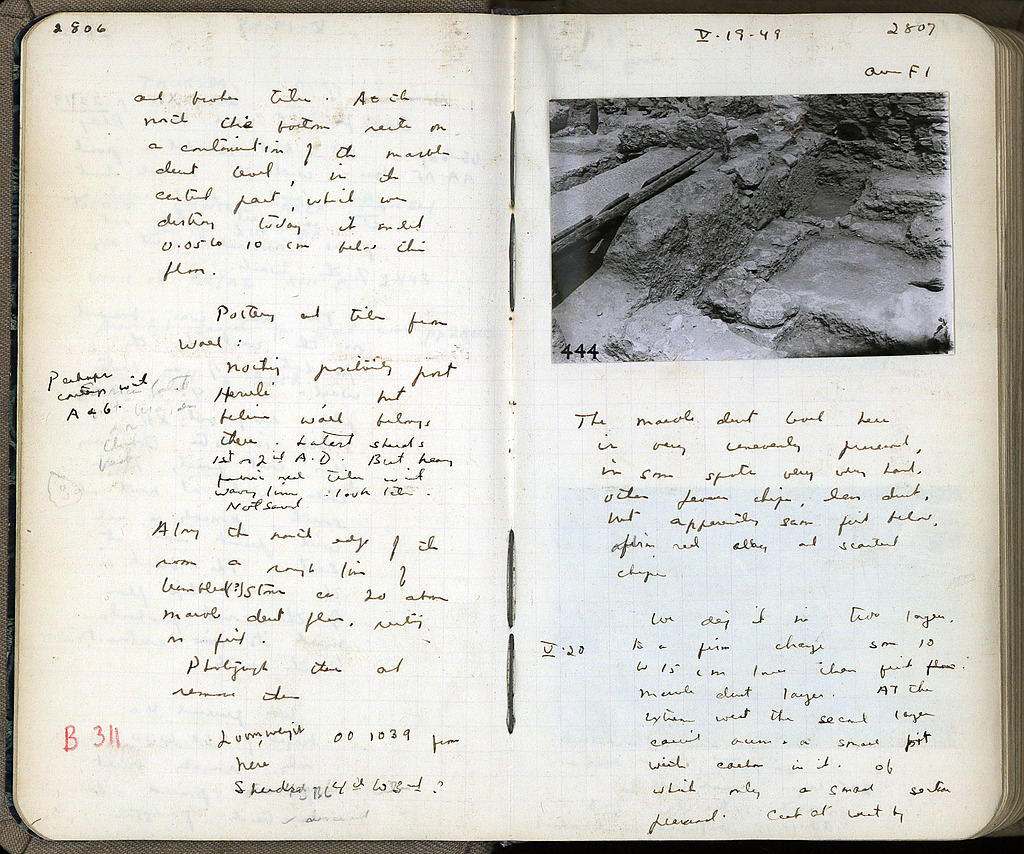 2806
and broken tile. At the
north this bottom rests on
a continuation of the marble
dust level, in the
central part, which we
destroy today it ended
0.05 to 10 cm below this
floor.
Pottery and tile from
wall:
Perhaps
contem with
A + G.
Nothing positively post
Heruli but
believe wall belongs
there. Latest sherds
1st or 2nd A.D. But heavy
fabric red tiles with
wavy lines look late.
Not saved
Along the north edge of the
room a rough line of
tumbled(?) stone ca 20 above
marble dust floor, resting
on fill.
Photograph then and
remove them
B 311
Loomweight 00 1039 from
here
4th to 3rd ?
V-19-49
2807
Ave F1
444
The marble dust level here
is very unevenly preserved,
in some spots very very hard,
other fewer chips, less dust,
but apparently same fill below,
red clay and scattered
chips
We dig it in two layers.
V-20
to a firm change some 10
to 15 cm lower than first floor.
marble dust layer. At the
extreme west the second layer
covered over a small pit
with in it. Of
which only a small section
preserved. Cut at west by